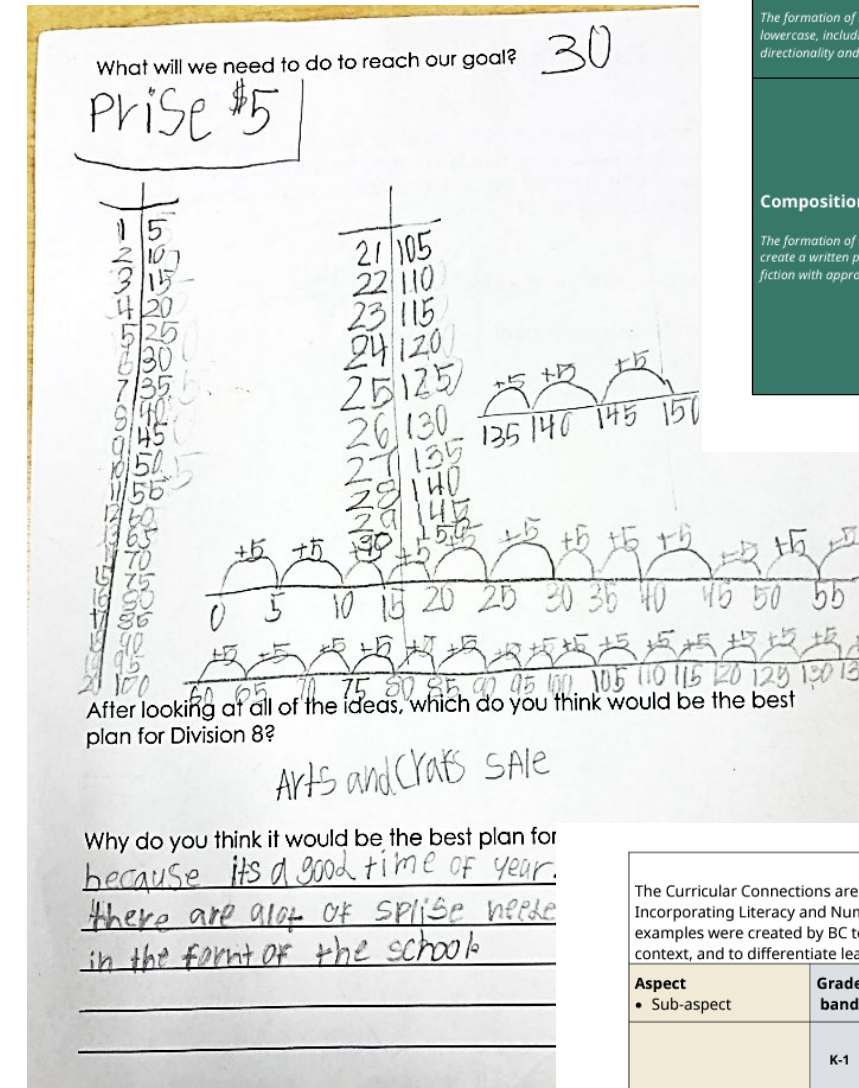 What will we need to do to reach our goal? 30
Prise $5
1 5
2 10
3 15
4 20
5 25
6 30
7 35
8 40
9 45
10 50
11 55
12 60
13 65
14 70
15 75
16 80
17 85
18 90
19 95
20 100
21 105
22 110
23 115
24 120
25 125
26 130
27 135
28 140
29 145
30 150
+5 +5 +5
135 140 145 150
+5 +5 +5 +5 +5 +5 +5 +5 +5 +5 +5
0 5 10 15 20 25 30 35 40 45 50 55
+5 +5 +5 +5 +5 +5 +5 +5 +5 +5 +5 +5 +5 +5
60 65 70 75 80 85 90 95 100 105 110 115 120 125 130 13
After looking at all of the ideas, which do you think would be the best
plan for Division 8?
Arts and Crats SAle
Why do you think it would be the best plan for
because its a good time of year.
there are alot of splise neede
in the fornt of the school.
The formation of
lowercase, includ
directionality and
Composition
The formation of
create a written p
fiction with appro
The Curricular Connections are
Incorporating Literacy and Num
examples were created by BC te
context, and to differentiate lea
Aspect
• Sub-aspect
Grade
band
K-1